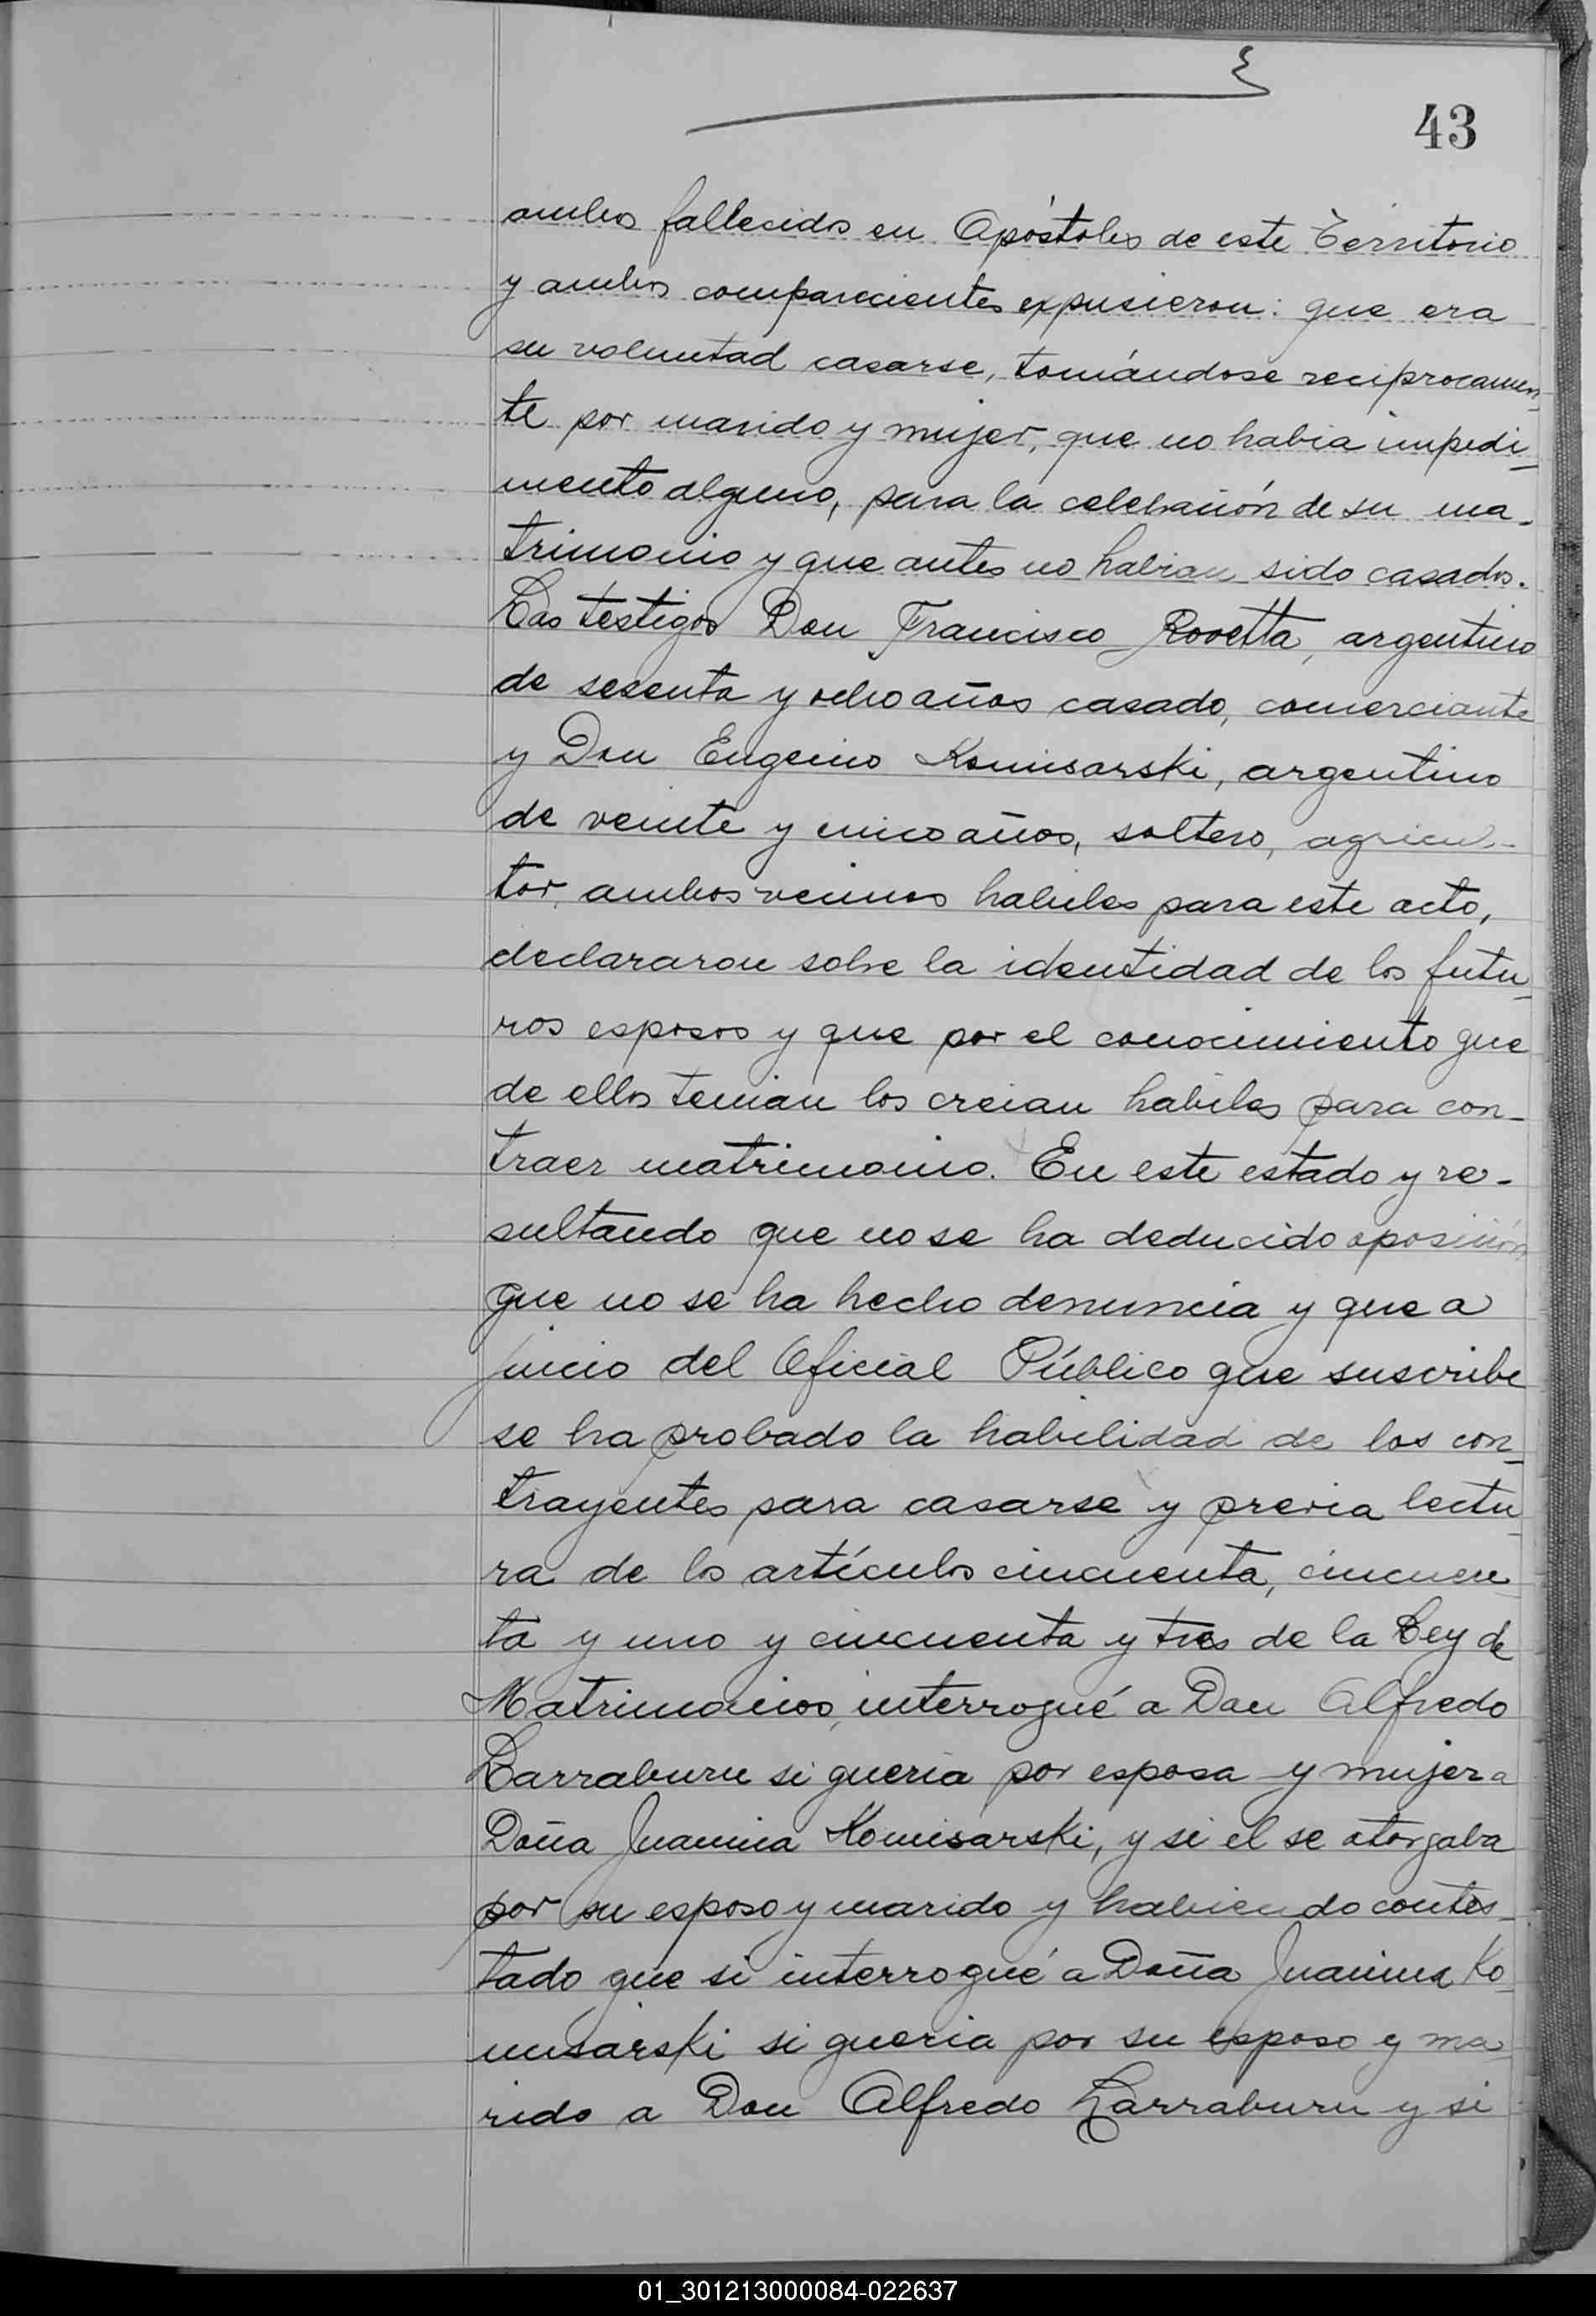 43
ambos fallecidos en Apóstoles de este Territorio
y ambos comparecientes expusieron: que era
su voluntad casarse, tomándose reciprocamen_
te por marido y mujer, que no habia impedi_
mento alguno, para la celebración de su ma-
trimonio y que antes no habian sido casados.
Los testigos Don Francisco Rovetta, argentino
de sesenta y ocho años casado, comerciante
y Don Eugenio Komisarski, argentino
de veinte y cinco años, soltero, agricul-
tor, ambos vecinos habiles para este acto,
declararon sobre la identidad de los futu_
ros esposos y que por el conocimiento que
de ellos tenian los creian habiles para con-
traer matrimonio. En este estado y re-
sultando que no se ha deducido oposición
que no se ha hecho denuncia y que a
juicio del Oficial Público que suscribe
se ha probado la habilidad de los con_
trayentes para casarse y previa lectu_
ra de los artículos cincuenta, cincuen
ta y uno y cincuenta y tres de la Ley de
Matrimonios, interrogué a Don Alfredo
Larraburu si queria por esposa y mujer a
Doña Juanina Komisarski, y si el se otorgaba
por su esposo y marido y habiendo contes_
tado que si interrogué a Doña Juanina Ko_
misarski si queria por su esposo y ma_
rido a Don Alfredo Larraburu y si
01_301213000084-022637